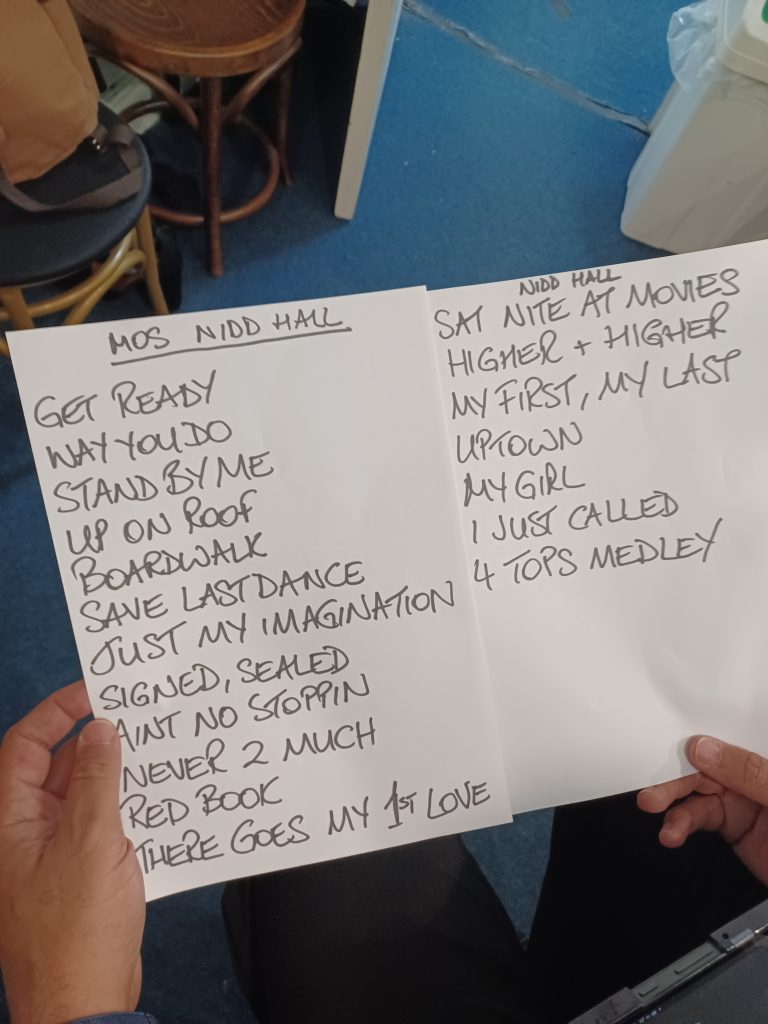 MOS NIDD HALL
GET READY
WAY YOU DO
STAND BY ME
UP ON ROOF
BOARDWALK
SAVE LAST DANCE
JUST MY IMAGINATION
SIGNED, SEALED
AINT NO STOPPIN
NEVER 2 MUCH
RED BOOK
THERE GOES MY 1ST LOVE
NIDD HALL
SAT NITE AT MOVIES
HIGHER + HIGHER
MY FIRST, MY LAST
UPTOWN
MY GIRL
I JUST CALLED
4 TOPS MEDLEY